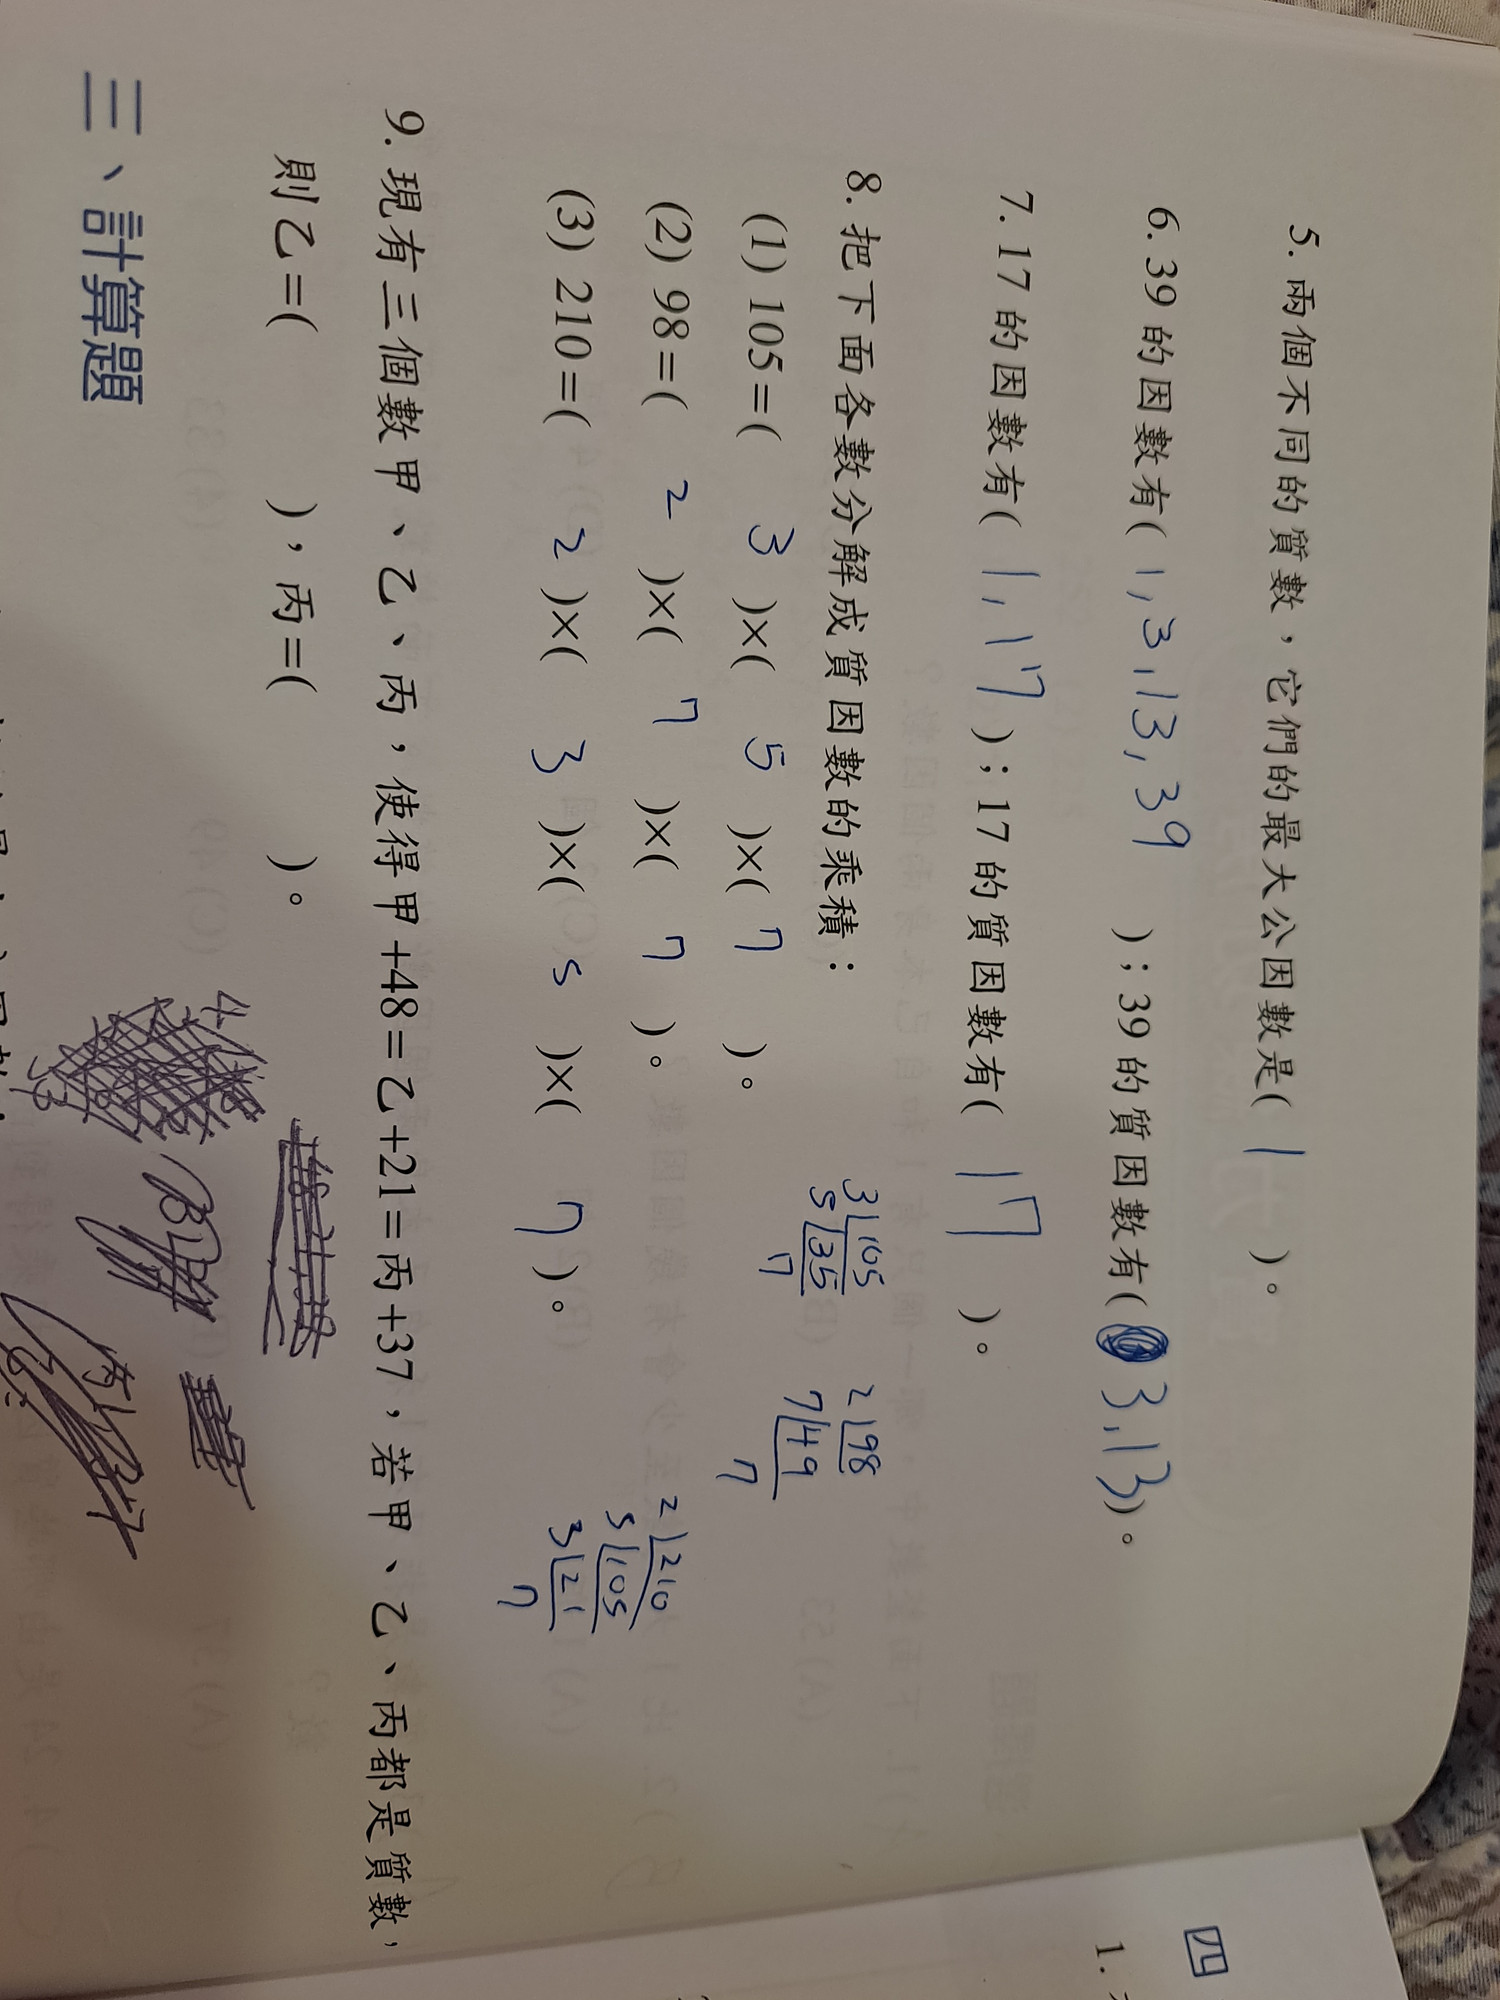 5. 兩個不同的質數，它們的最大公因數是( 1 )。
6. 39的因數有( 1, 3, 13, 39 )；39的質因數有( 3, 13 )。
7. 17的因數有( 1, 17 )；17的質因數有( 17 )。
8. 把下面各數分解成質因數的乘積：
(1) 105=( 3 )×( 5 )×( 7 )。
3 105
5 35
7
(2) 98=( 2 )×( 7 )×( 7 )。
2 98
7 49
7
(3) 210=( 2 )×( 3 )×( 5 )×( 7 )。
2 210
5 105
3 21
7
9. 現有三個數甲、乙、丙，使得甲+48=乙+21=丙+37，若甲、乙、丙都是質數，
則乙=( )，丙=( )。
三、計算題
四
1.